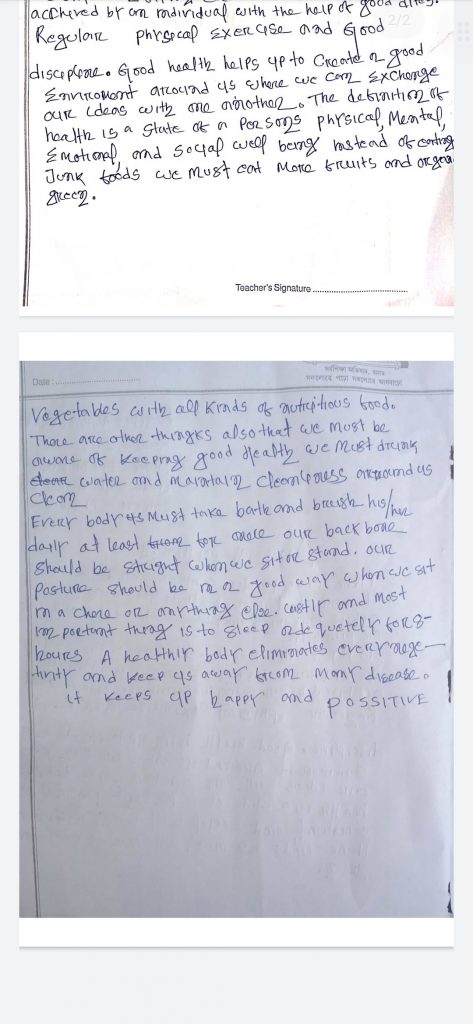 acchived by an individual with the help of good diet.
2/2
Regular physical Exercise and Good
discipline. Good health helps up to Create a good
Enviroment around us where we can Exchange
our ideas with one another. The definition of
health is a state of a persons physical, Mental,
Emotional, and social well being instead of eating
Junk foods we must eat More fruits and organ
green.
Teacher's Signature
Date :
Vegetables with all kinds of nutritious food.
There are other things also that we must be
aware of keeping good Health we must drink
water and maintain cleanliness around us
Clean
Every body Must take bath and brush his/her
daily at least for once our back bone
should be straight when we sit or stand. our
Posture should be in a good way when we sit
in a chere or anything else. lastly and most
important thing is to sleep adequetely for 8-
hours A healthly body eliminates every nege-
tivity and keep us away from many disease.
it keeps up happy and POSSITIVE